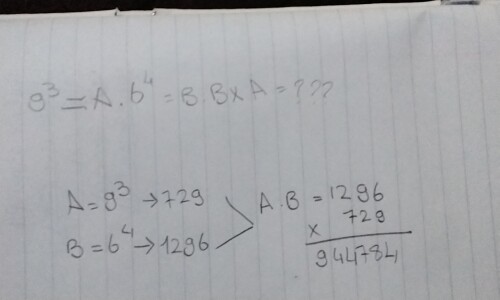 9³ = A . 6⁴ = B . B x A = ???
A = 9³ → 729
B = 6⁴ → 1296
A.B = 1296
x 729
944784